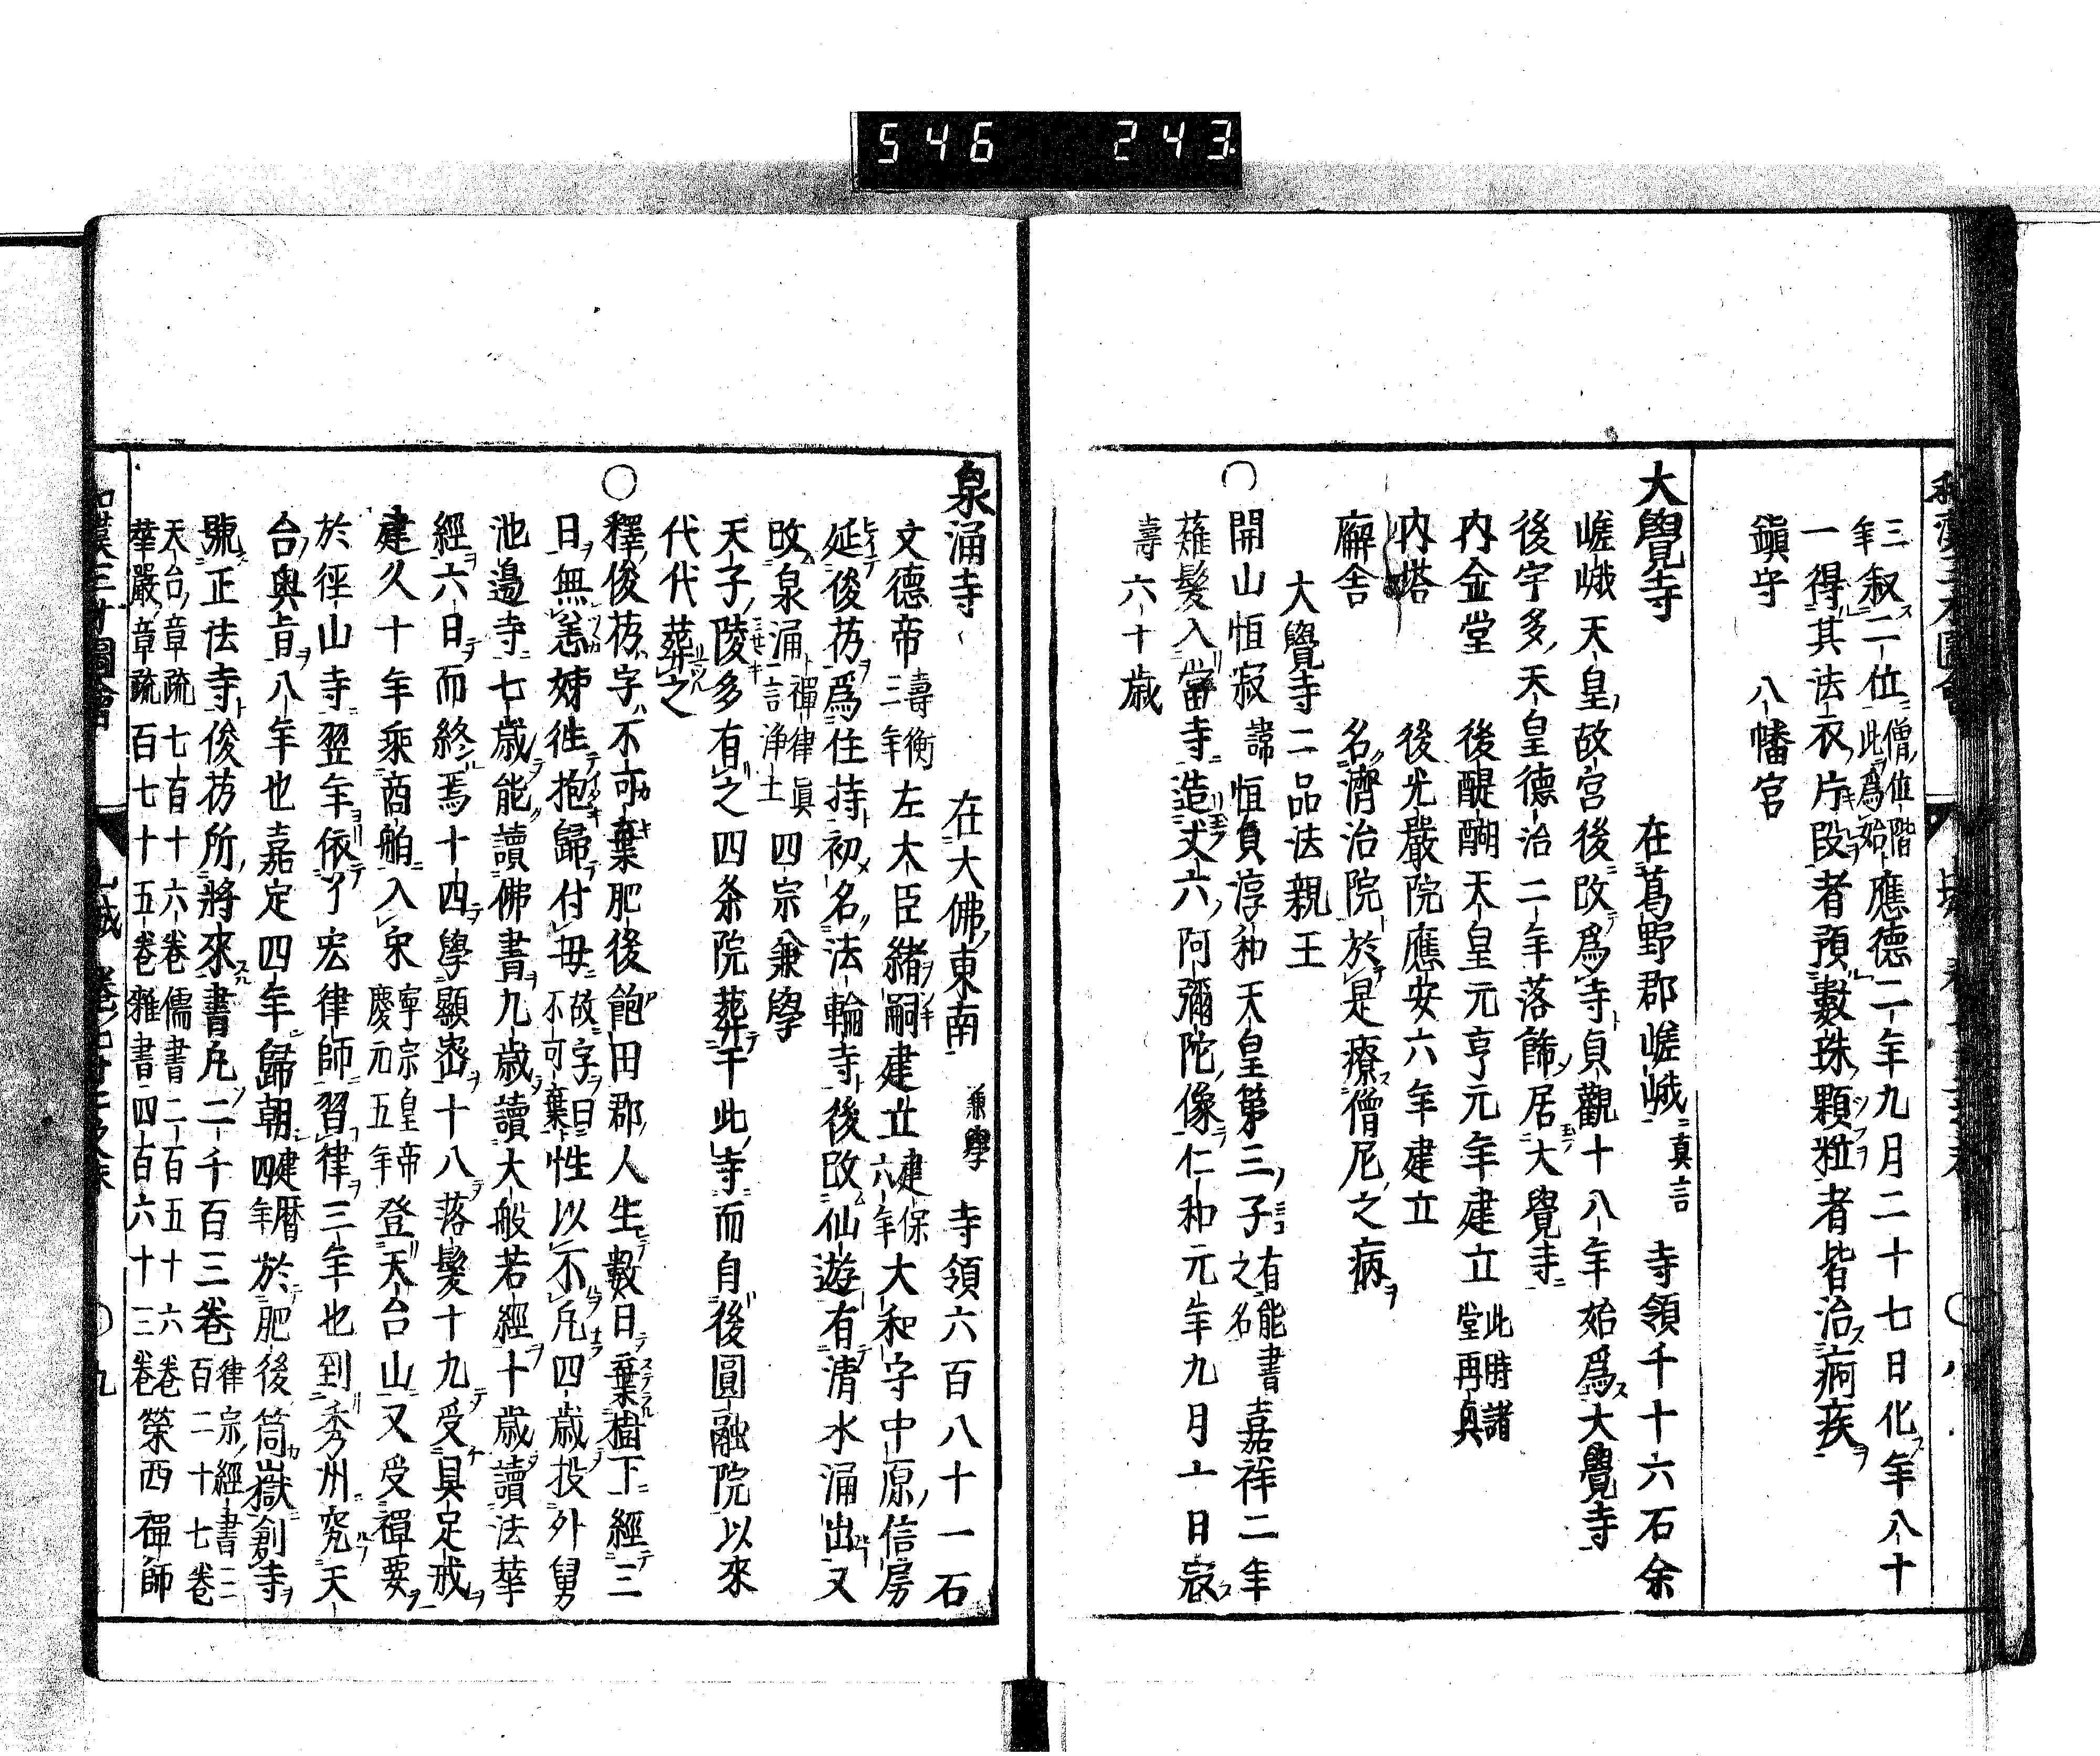 546 243
三叙二位僧位階此爲始應德二年九月二十七日化年八十
年
一得其法衣片段者預數珠顆粒者皆治病疾
鎭守 八幡宮
大覺寺 在葛野郡嵯峨 真言 寺領千十六石余
嵯峨天皇故宮後改爲寺貞觀十八年始爲大覺寺
後宇多天皇德治二年落飾居大覺寺
内金堂 後醍醐天皇元亨元年建立 此時諸堂再真
内塔 後光嚴院應安六年建立
廨舎 名濟治院於是療僧尼之病
大覺寺二品法親王
○開山恒寂 諱恒貞淳和天皇第三子 有能書之名 嘉祥二年
薙髮入當寺造丈六阿彌陀像仁和元年九月十日寂
壽六十歳
泉涌寺 在大佛東南 兼學 寺領六百八十一石
文德帝 壽衡三年 左大臣緒嗣建立 建保六年 大和守中原信房
延俊芿爲住持初名法輪寺後改仙遊有清水涌出又
改泉涌 禪律眞言浄土 四宗兼學
天子陵多有之四条院葬于此寺而自後圓融院以來
代代葬之
○釋俊芿字不可棄肥後飽田郡人生數日棄樹下經三
日無恙姉徃抱歸付母 故字曰不可棄 性以不凡四歳投外舅
池邉寺七歳能讀佛書九歳讀大般若經十歳讀法華
經六日而終焉十四學顯密十八落髮十九受具足戒
建久十年乘商舶入宋 寧宗皇帝慶元五年 登天台山又受禪要
於徑山寺翌年依了宏律師習律三年也到秀州究天
台奧旨八年也嘉定四年歸朝 建暦四年 於肥後筒嶽創寺
號正法寺俊芿所將來書凡二千百三卷 律宗經書三百二十七卷
天台章疏七百十六卷儒書二百五十六卷
華嚴章疏百七十五卷雜書四百六十三卷 榮西禪師
九